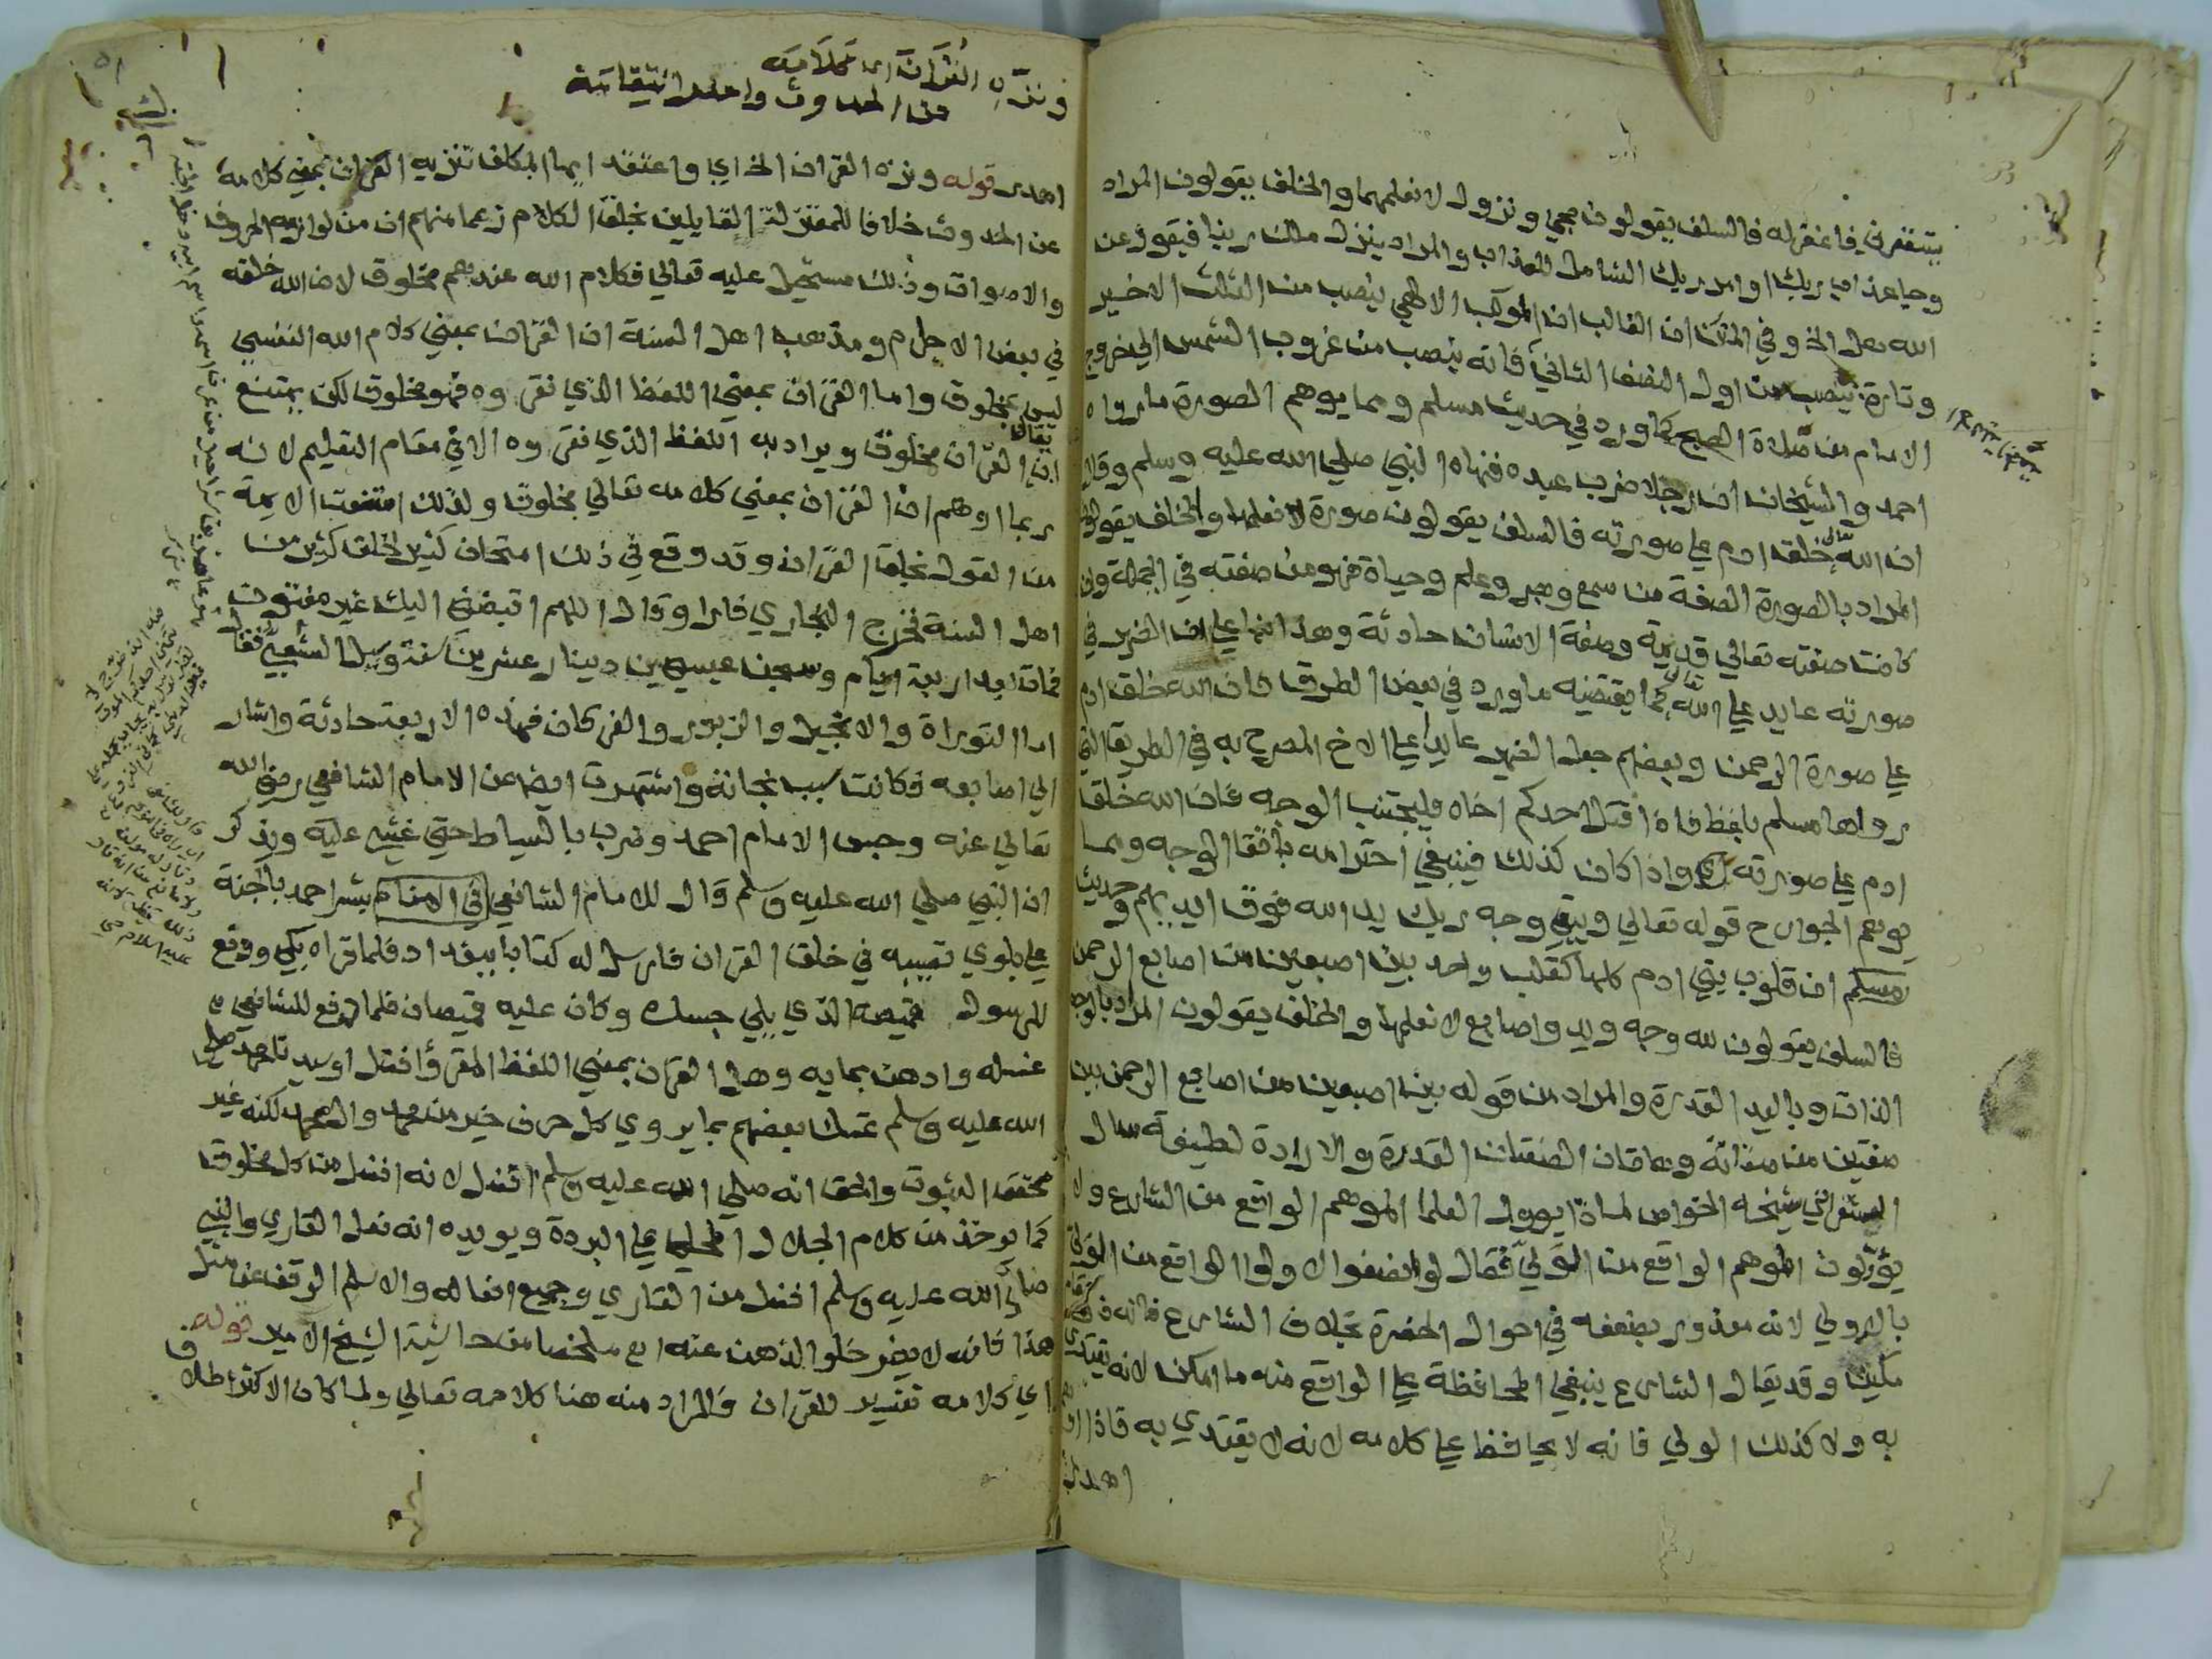 يستغفرني فاغفر له فالسلف يقولون مجي ونزول لا نعلمهما والخلف يقولون المراد
وجا عذاب ربك او امر ربك الشامل للعذاب والمراد ينزل ملك ربنا فيقول عن
الله هل الخ وفي المنن ان الغالب ان الموكب الالهي ينصب من الثلث الاخير
وتارة ينصب من اول النصف الثاني فانه ينصب من غروب الشمس الي خروج
الامام من صلاة الصبح كما ورد في حديث مسلم ومما يوهم الصورة ما رواه
احمد والشيخان ان رجلا ضرب عبده فنهاه النبي صلي الله عليه وسلم وقال
ان الله تعالى خلق ادم علي صورته فالسلف يقولون صورة لا نعلمها والخلف يقولون
المراد بالصورة الصفة من سمع وبصر وعلم وحياة فهو من صفته في الجملة وان
كانت صفته تعالي قديمة وصفة الانسان حادثة وهذا انما علي ان الضمير في
صورته عايد علي الله تعالى كما يقتضيه ما ورد في بعض الطرق فان الله خلق ادم
علي صورة الرحمن وبعضهم جعل الضمير عايدا علي الاخ المصرح به في الطريق التي
رواها مسلم بلفظ فاذا قتل احدكم اخاه فليجتنب الوجه فان الله خلق
ادم علي صورته واذا كان كذلك فينبغي احترامه باتقا الوجه ومما
يوهم الجوارح قوله تعالي ويبقي وجه ربك يد الله فوق ايديهم وحديث
مسلم ان قلوب بني ادم كلها كقلب واحد بين اصبعين من اصابع الرحمن
فالسلف يقولون لله وجه ويد واصابع لا نعلمها والخلف يقولون المراد بالوجه
الذات وباليد القدرة والمراد من قوله بين اصبعين من اصابع الرحمن بين
صفتين من صفاته وهاتان الصفتان القدرة والارادة لطيفة سال
الشعراني شيخه الخواص لماذا يوول العلما الموهم الواقع من الشارع ولا
يؤولون الموهم الواقع من الولي فقال لو انصفوا لاولوا الواقع من الولي
بالاولي لانه معذور بضعفه في احوال الحضرة بخلاف الشارع فانه ذو مقام
مكين وقد يقال الشارع ينبغي المحافظة علي الواقع منه ما امكن لانه يقتدي
به ولا كذلك الولي فانه لا يحافظ علي كلامه لانه لا يقتدي به
ونزه القران اي كلامه
من الحدوث واحذر انتقامه
قوله ونزه القران الخ اي واعتقد ايها المكلف تنزيه القران بمعني كلامه
عن الحدوث خلافا للمعتزلة القايلين بخلق الكلام زعما منهم ان من لوازمه الحروف
والاصوات وذلك مستحيل عليه تعالي فكلام الله عندهم مخلوق لان الله خلقه
في بعض الاجرام ومذهب اهل السنة ان القران بمعني كلام الله النفسي
ليس بمخلوق واما القران بمعني اللفظ الذي نقروه فهو مخلوق لكن يمتنع
ان يقال القران مخلوق ويراد به اللفظ الذي نقروه الا في مقام التعليم لانه
ربما اوهم ان القران بمعني كلامه تعالي مخلوق ولذلك امتنعت الايمة
من القول بخلق القران وقد وقع في ذلك امتحان كثير لخلق كثير من
اهل السنة فخرج البخاري فارا وقال اللهم اقبضني اليك غير مفتون
فمات بعد اربعة ايام وسجن عيسي بن دينار عشرين سنة وسيل الشعبي فقال
اما التوراة والانجيل والزبور والفرقان فهذه الاربعة حادثة واشار
الي اصابعه فكانت سبب نجاته واشتهرت ايضا عن الامام الشافعي رضي الله
تعالي عنه وحبس الامام احمد وضرب بالسياط حتي غشي عليه ويذكر
ان النبي صلي الله عليه وسلم قال للامام الشافعي في المنام بشر احمد بالجنة
علي بلوي تصيبه في خلق القران فارسل له كتابا ببغداد فلما قراه بكي ودفع
للرسول قميصه الذي يلي جسده وكان عليه قميصان فلما دفع للشافعي
غسله وادهن بمايه وهل القران بمعني اللفظ المقرؤ افضل او سيدنا محمد صلي
الله عليه وسلم تمسك بعضهم بما يروي كل حرف خير من محمد وال محمد لكنه غير
محقق الثبوت والحق انه صلي الله عليه وسلم افضل لانه افضل من كل مخلوق
كما يوخذ من كلام الجلال المحلي علي البردة ويويده انه فعل القاري والنبي
صلي الله عليه وسلم افضل من القاري وجميع افعاله والاسلم الوقف عن مثل
هذا فانه لا يضر خلو الذهن عنه اه ملخصا من حاشية الشيخ الامير قوله
اي كلامه تفسير للقران فالمراد منه هنا كلامه تعالي ولما كان الاكثر اطلاق